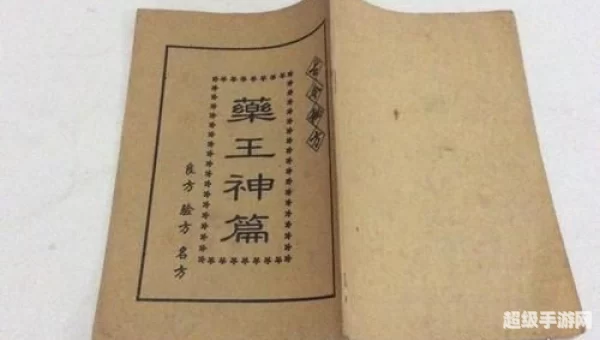 藥王神篇
良方 验方 名方
超级手游网